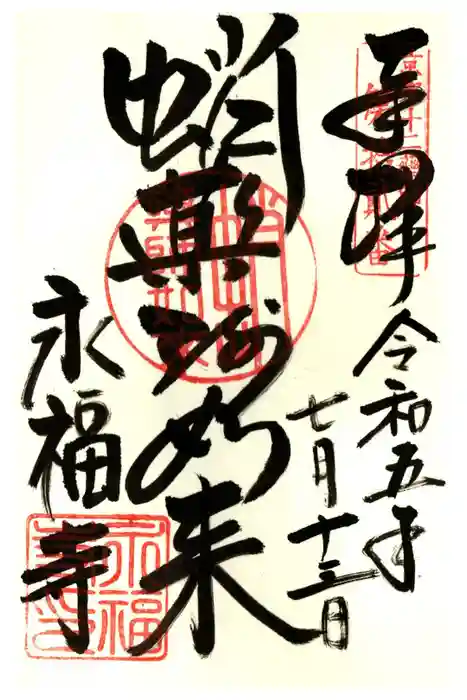 奉拝
令和五年
七月十三日
蛸薬師如来
永福寺
永福
寺印